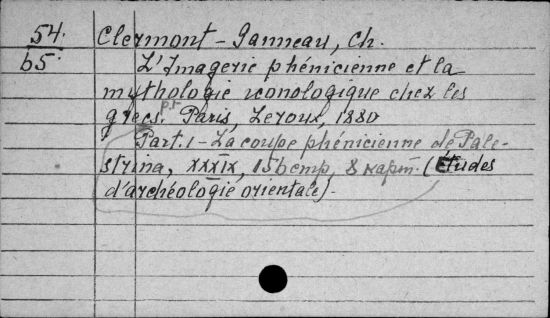 54. Clermont-Ganneau, Ch.
b5. L'Imagerie phénicienne et la
mythologie iconologique chez les
p.t
grecs. Paris, Leroux, 1880
Part. 1 - La coupe phénicienne de Pale-
strina, XXXIX, 156 стр, 8 карт. (Études
d'archéologie orientale).